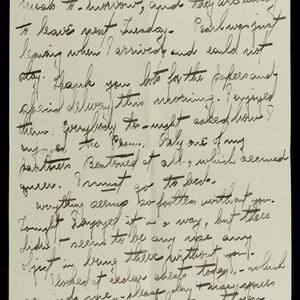 to-morrow, and they are
to leave next Tuesday. Pearl was just
leaving when I arrived and could not
stay. Thank you lots for the papers and
special delivery this morning. I enjoyed
them. Everybody to-night asked how I
enjoyed the Only one of my
partners at all, which seemed
queer. I must go to bed.
Everything seems so without you.
Tonight I enjoyed it in a way, but there
didn't seem to be any use any
object in being there without you.
I looked at cedar chests today, - which